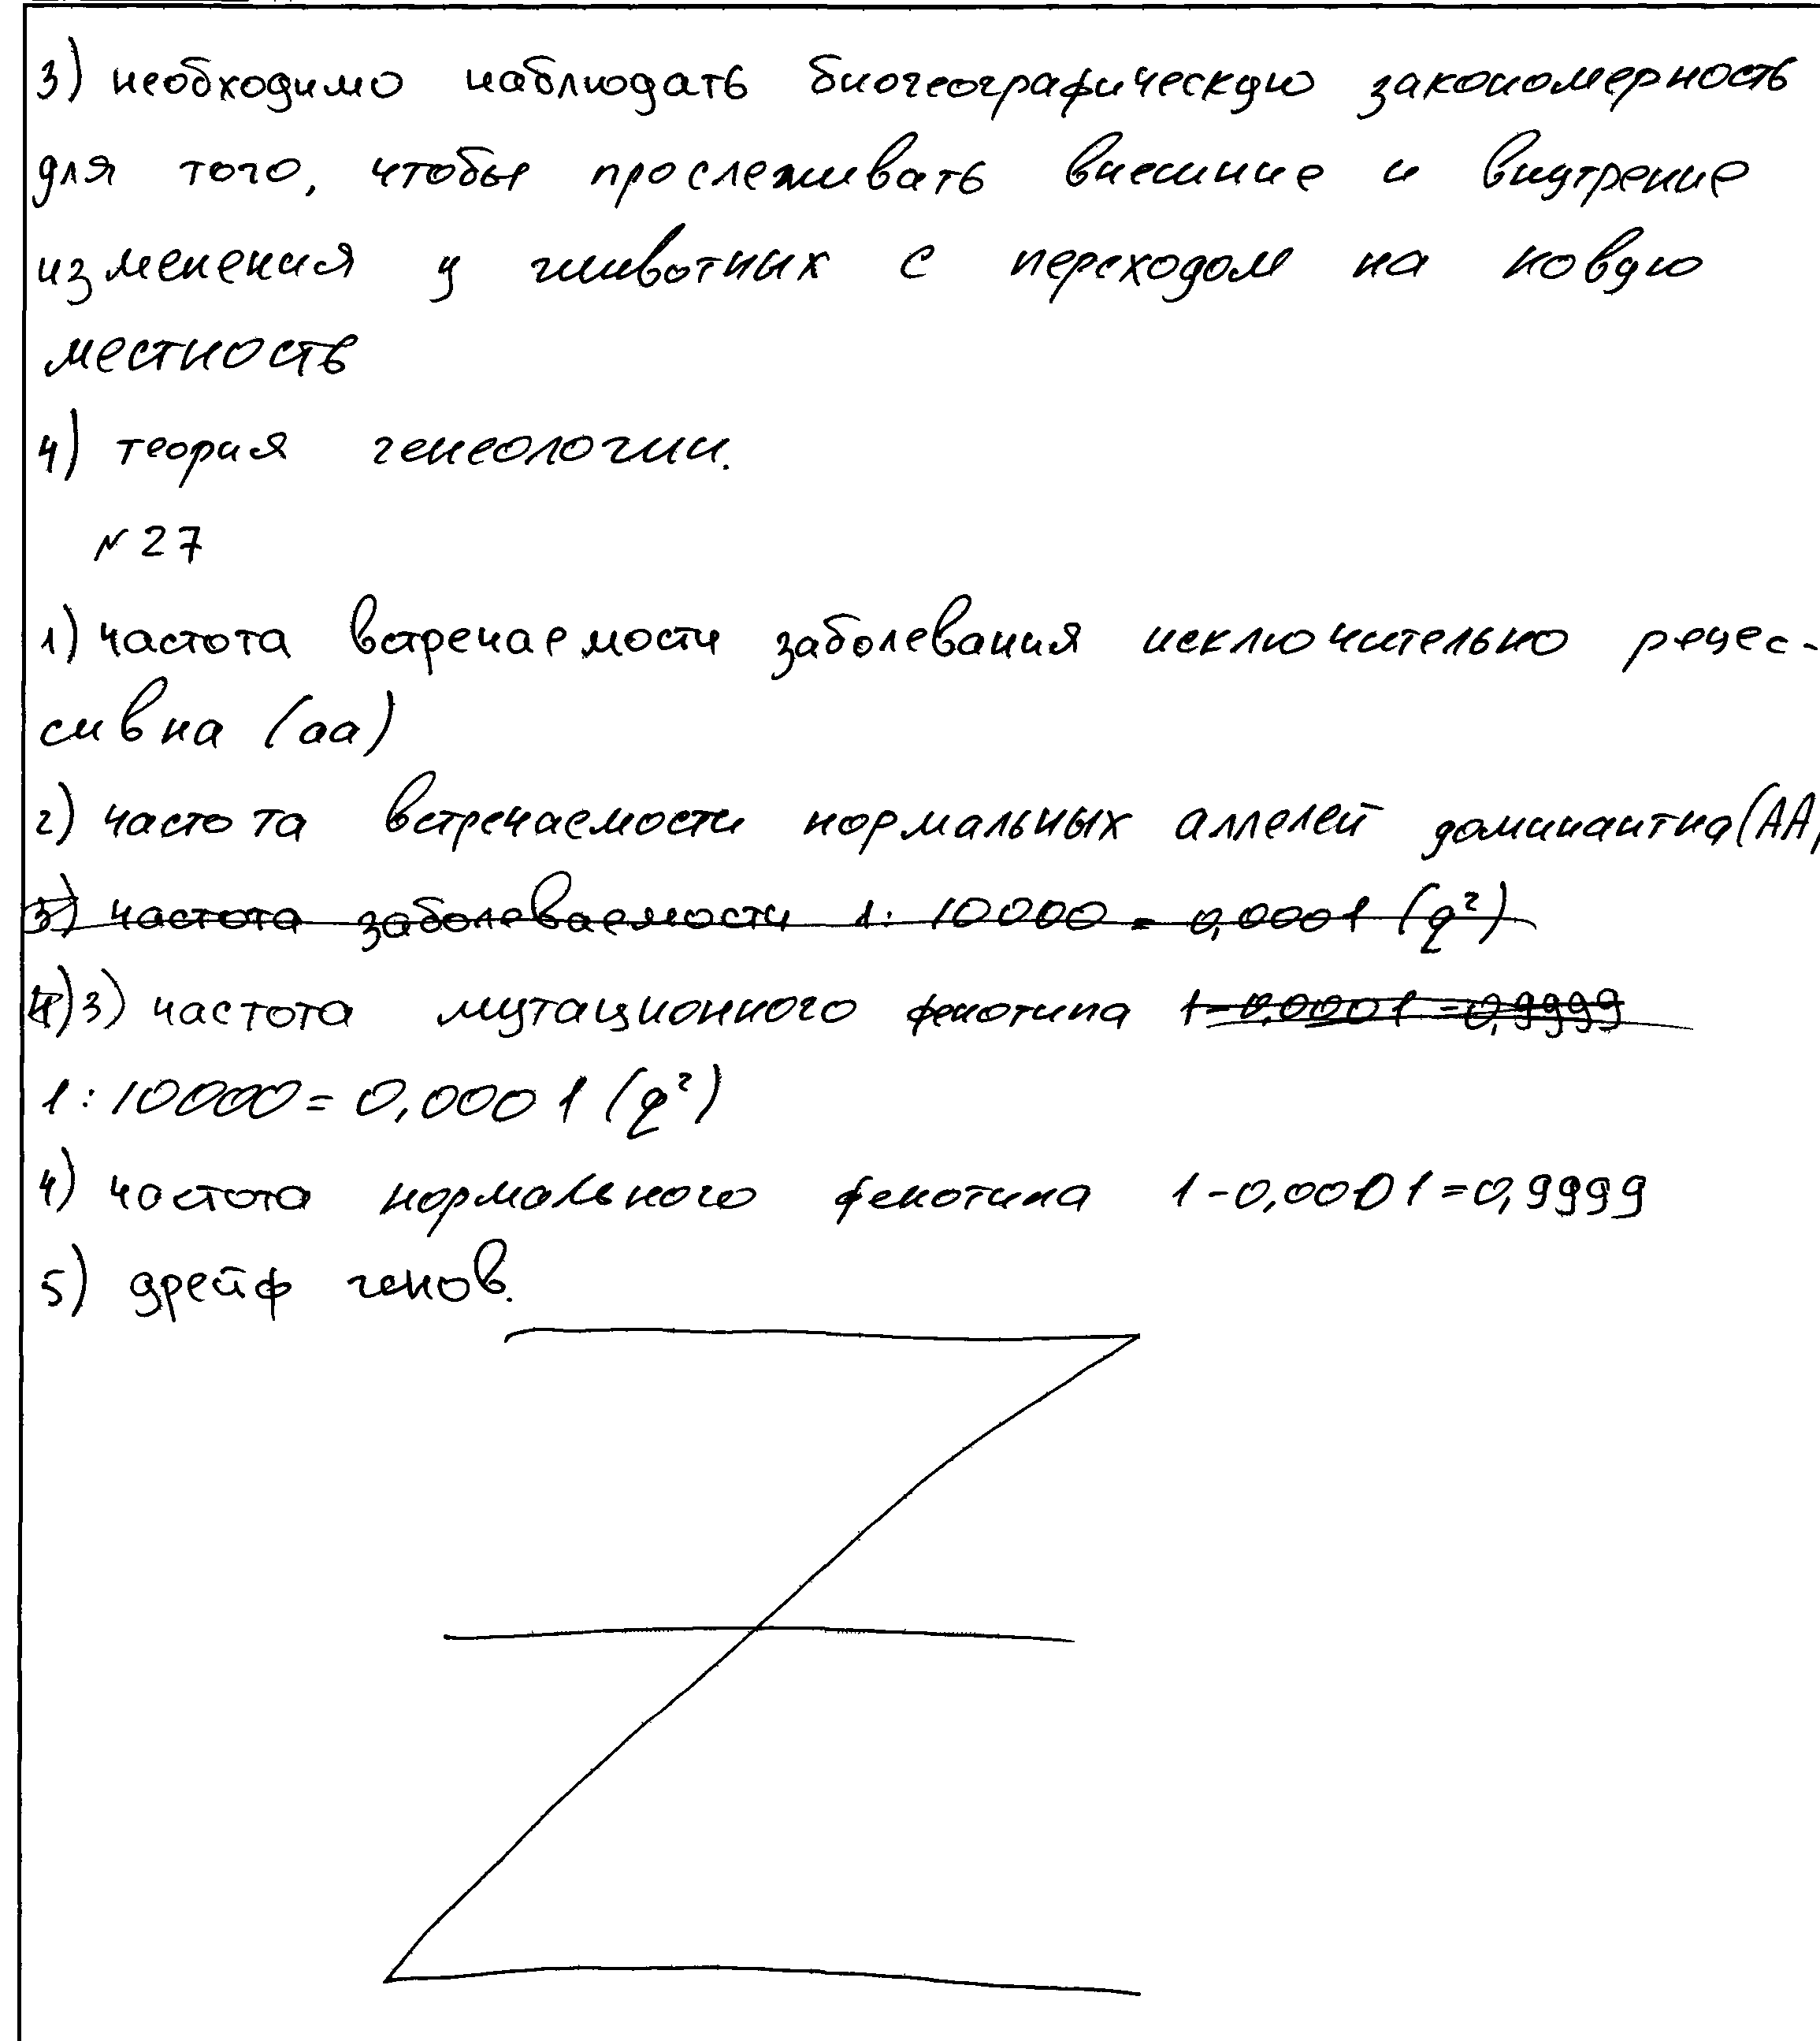 3) необходимо наблюдать биогеографическую закономерность
для того, чтобы прослеживать внешние и внутрение
изменения у животных с переходом на новую
местность
4) теория генеологии.
№27
1) частота встречаемости заболевания исключительно рецес-
сивна (аа)
2) частота встречаемости нормальных аллелей доминантна (АА)
3) частота заболеваемости 1: 10000 = 0,0001 (q²)
4) 3) частота мутационного фенотипа 1-0,0001=0,9999
1:10000=0,0001 (q²)
4) частота нормального фенотипа 1-0,0001=0,9999
5) дрейф генов.